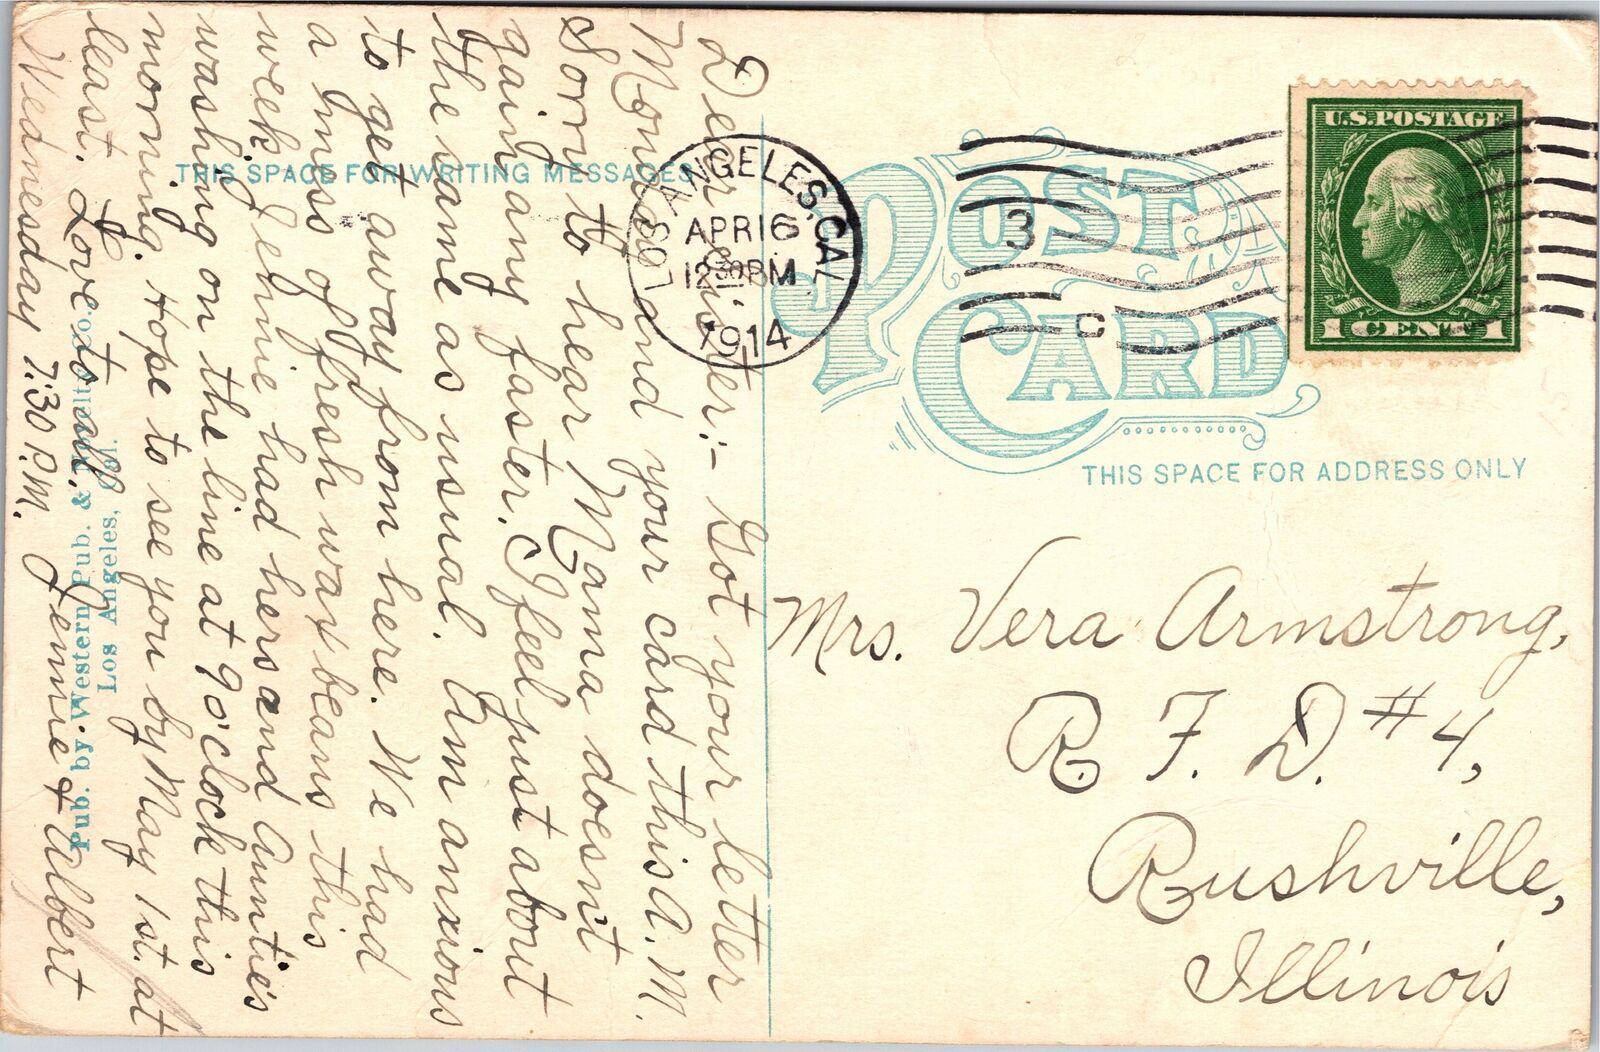 Dear Sister:- Got your letter
Monday and your card this A.M.
Sorry to hear Mama doesn't
gain any faster. I feel just about
the same as usual. Am anxious
to get away from here. We had
a mess of fresh wax beans this
week. Jennie had hers and Auntie's
washing on the line at 9 o'clock this
morning. Hope to see you by May 1st. at
least. Love to all.
Wednesday 7:30 P.M. Jennie & Albert
THIS SPACE FOR WRITING MESSAGES
Pub. by Western Pub. & Novelty Co.
Los Angeles, Cal.
LOS ANGELES, CAL
APR 16
12 30 PM
1914
3
C
POST
CARD
U.S. POSTAGE
1 CENT 1
THIS SPACE FOR ADDRESS ONLY
Mrs. Vera Armstrong,
R. F. D. #4,
Rushville,
Illinois